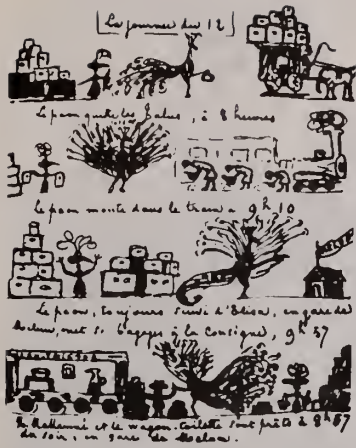 La journée du 12
Le paon quitte les Talus, à 8 heures
Le paon monte dans le train à 9h 10
Le paon, toujours suivi d'Elisa, en gare de
Melun, met ses bagages à la Consigne, 9h 57
et le wagon-toilette sont prêts à 8h 57
du soir, en gare de Melun.